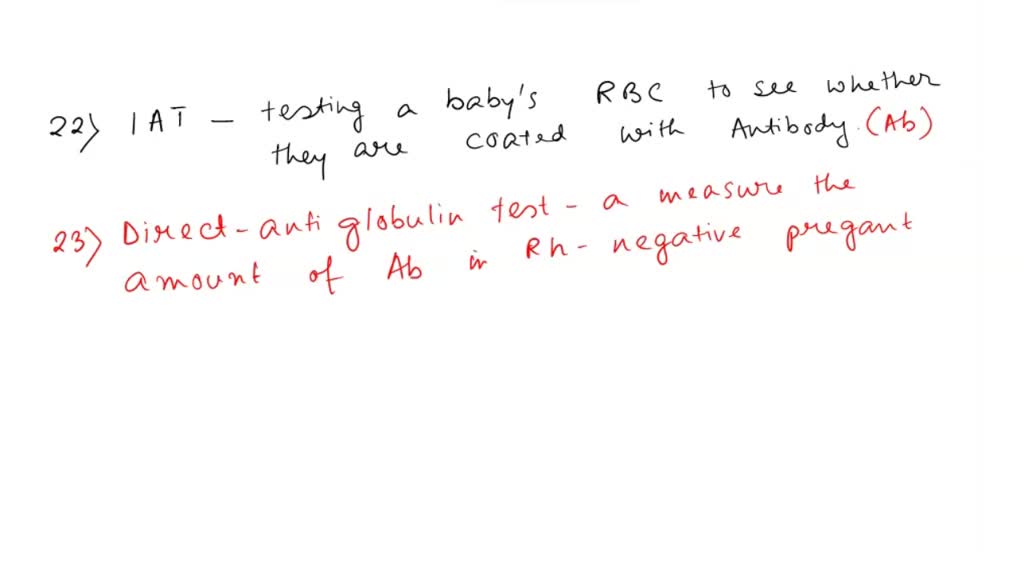 22) IAT - testing a baby's RBC to see whether
they are coated with Antibody. (Ab)
23) Direct-anti globulin test - a measure the
amount of Ab in Rh-negative pregant